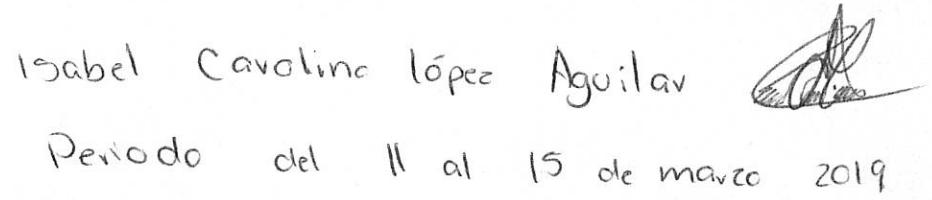 Isabel Carolina López Aguilar
Periodo del 11 al 15 de marzo 2019